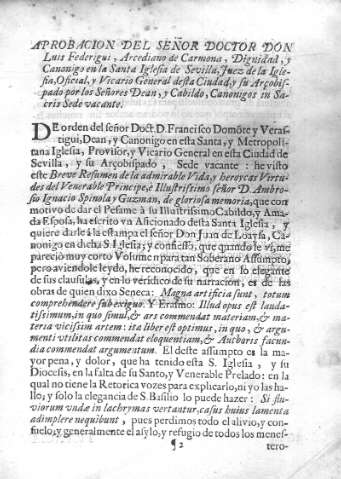 APROBACION DEL SEÑOR DOCTOR DON
Luis Federigui, Arcediano de Carmona, Dignidad, y
Canonigo en la Santa Iglesia de Sevilla, Juez de la Igle-
sia, Oficial, y Vicario General desta Ciudad, y su Arçobis-
pado por los Señores Dean, y Cabildo, Canonigos in Sa-
cris Sede vacante.
DE orden del señor Doct. D. Francisco Domōte y Veras-
tigui, Dean, y Canonigo en esta Santa, y Metropoli-
tana Iglesia, Provisor, y Vicario General en esta Ciudad de
Sevilla, y su Arçobispado, Sede vacante: he visto
este Breve Resumen de la admirable Vida, y heroycas Virtu-
des del Venerable Principe, è Illustrissimo señor D. Ambro-
sio Ignacio Spinola y Guzman, de gloriosa memoria, que con
motivo de dar el Pesame à su Illustrissimo Cabildo, y Ama-
da Esposa, ha escrito vn Aficionado desta Santa Iglesia, y
quiere darle à la estampa el señor Don Juan de Loaysa, Ca-
nonigo en dicha S. Iglesia; y confiesso, que quando le vi, me
pareciò muy corto Volumen para tan Soberano Assumpto,
pero aviendole leydo, he reconocido, que en lo elegante
de sus clausulas, y en lo veridico de su narracion, es de las
obras de quien dixo Seneca: Magna artificia sunt, totum
comprehendere sub exiguo. Y Erasmo: Illud opus est lauda-
tissimum, in quo simul, & ars commendat materiam, & ma-
teria vicissim artem: ita liber est optimus, in quo, & argu-
menti vtilitas commendat eloquentiam, & Authoris facun-
dia commendat argumentum. El deste assumpto es la ma-
yor pena, y dolor, que ha tenido esta S. Iglesia, y su
Diocesis, en la falta de su Santo, y Venerable Prelado: en la
qual no tiene la Retorica vozes para explicarlo, ni yo las ha-
llo; y solo la elegancia de S. Basilio lo puede hazer: Si flu-
viorum vndæ in lachrymas vertantur, casus huius lamenta
adimplere nequibunt, pues perdimos todo el alivio, y con-
suelo, y generalmente el asylo, y refugio de todos los menes-
¶ 2 tero-